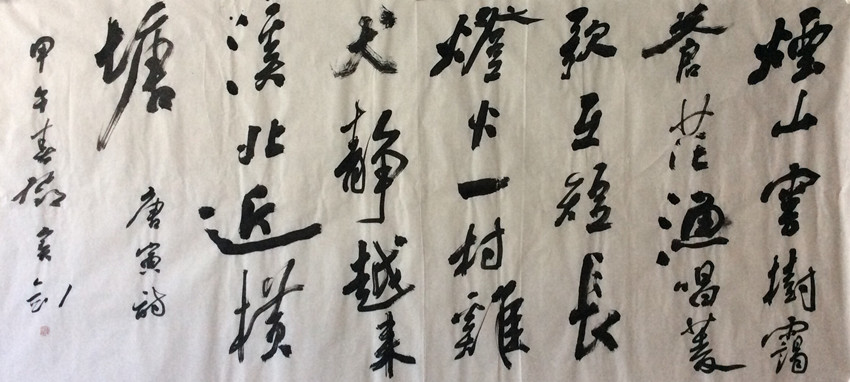 煙山雲樹靄
蒼茫漁唱菱
歌互短長
燈火一村雞
犬靜越来
溪北近橫
塘
唐寅詩
甲午春